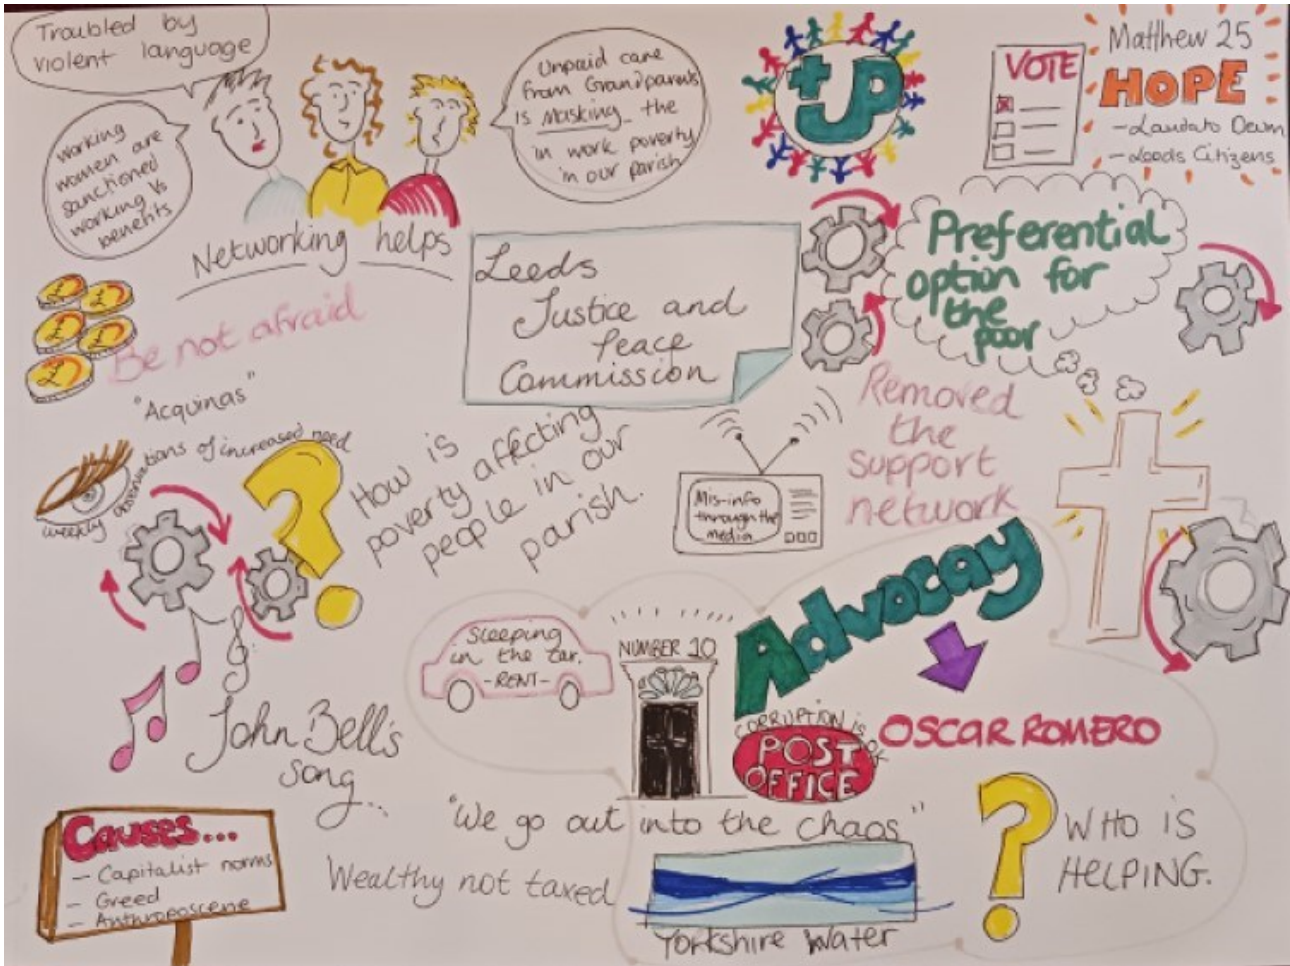 Troubled by
violent language
working
women are
sanctioned
working Vs
benefits
Unpaid care
from Grandparents
is masking the
in work poverty
in our parish
Networking helps
JP
VOTE
Matthew 25
HOPE
- Laudato Deum
- Leeds Citizens
Leeds
Justice and
Peace
Commission
Preferential
option for
the
poor
£
£
£
£
£
Be not afraid
"Acquinas"
weekly observations of increased need
?
How is
poverty affecting
people in our
parish.
Mis-info
through the
media
Removed
the
support
network
Sleeping
in the car.
- RENT -
NUMBER 10
Advocay
CORRUPTION IS OK
POST
OFFICE
OSCAR ROMERO
John Bell's
song...
"We go out into the chaos"
Causes...
- Capitalist norms
- Greed
- Anthroposcene
Wealthy not taxed
Yorkshire Water
?
WHO IS
HELPING.